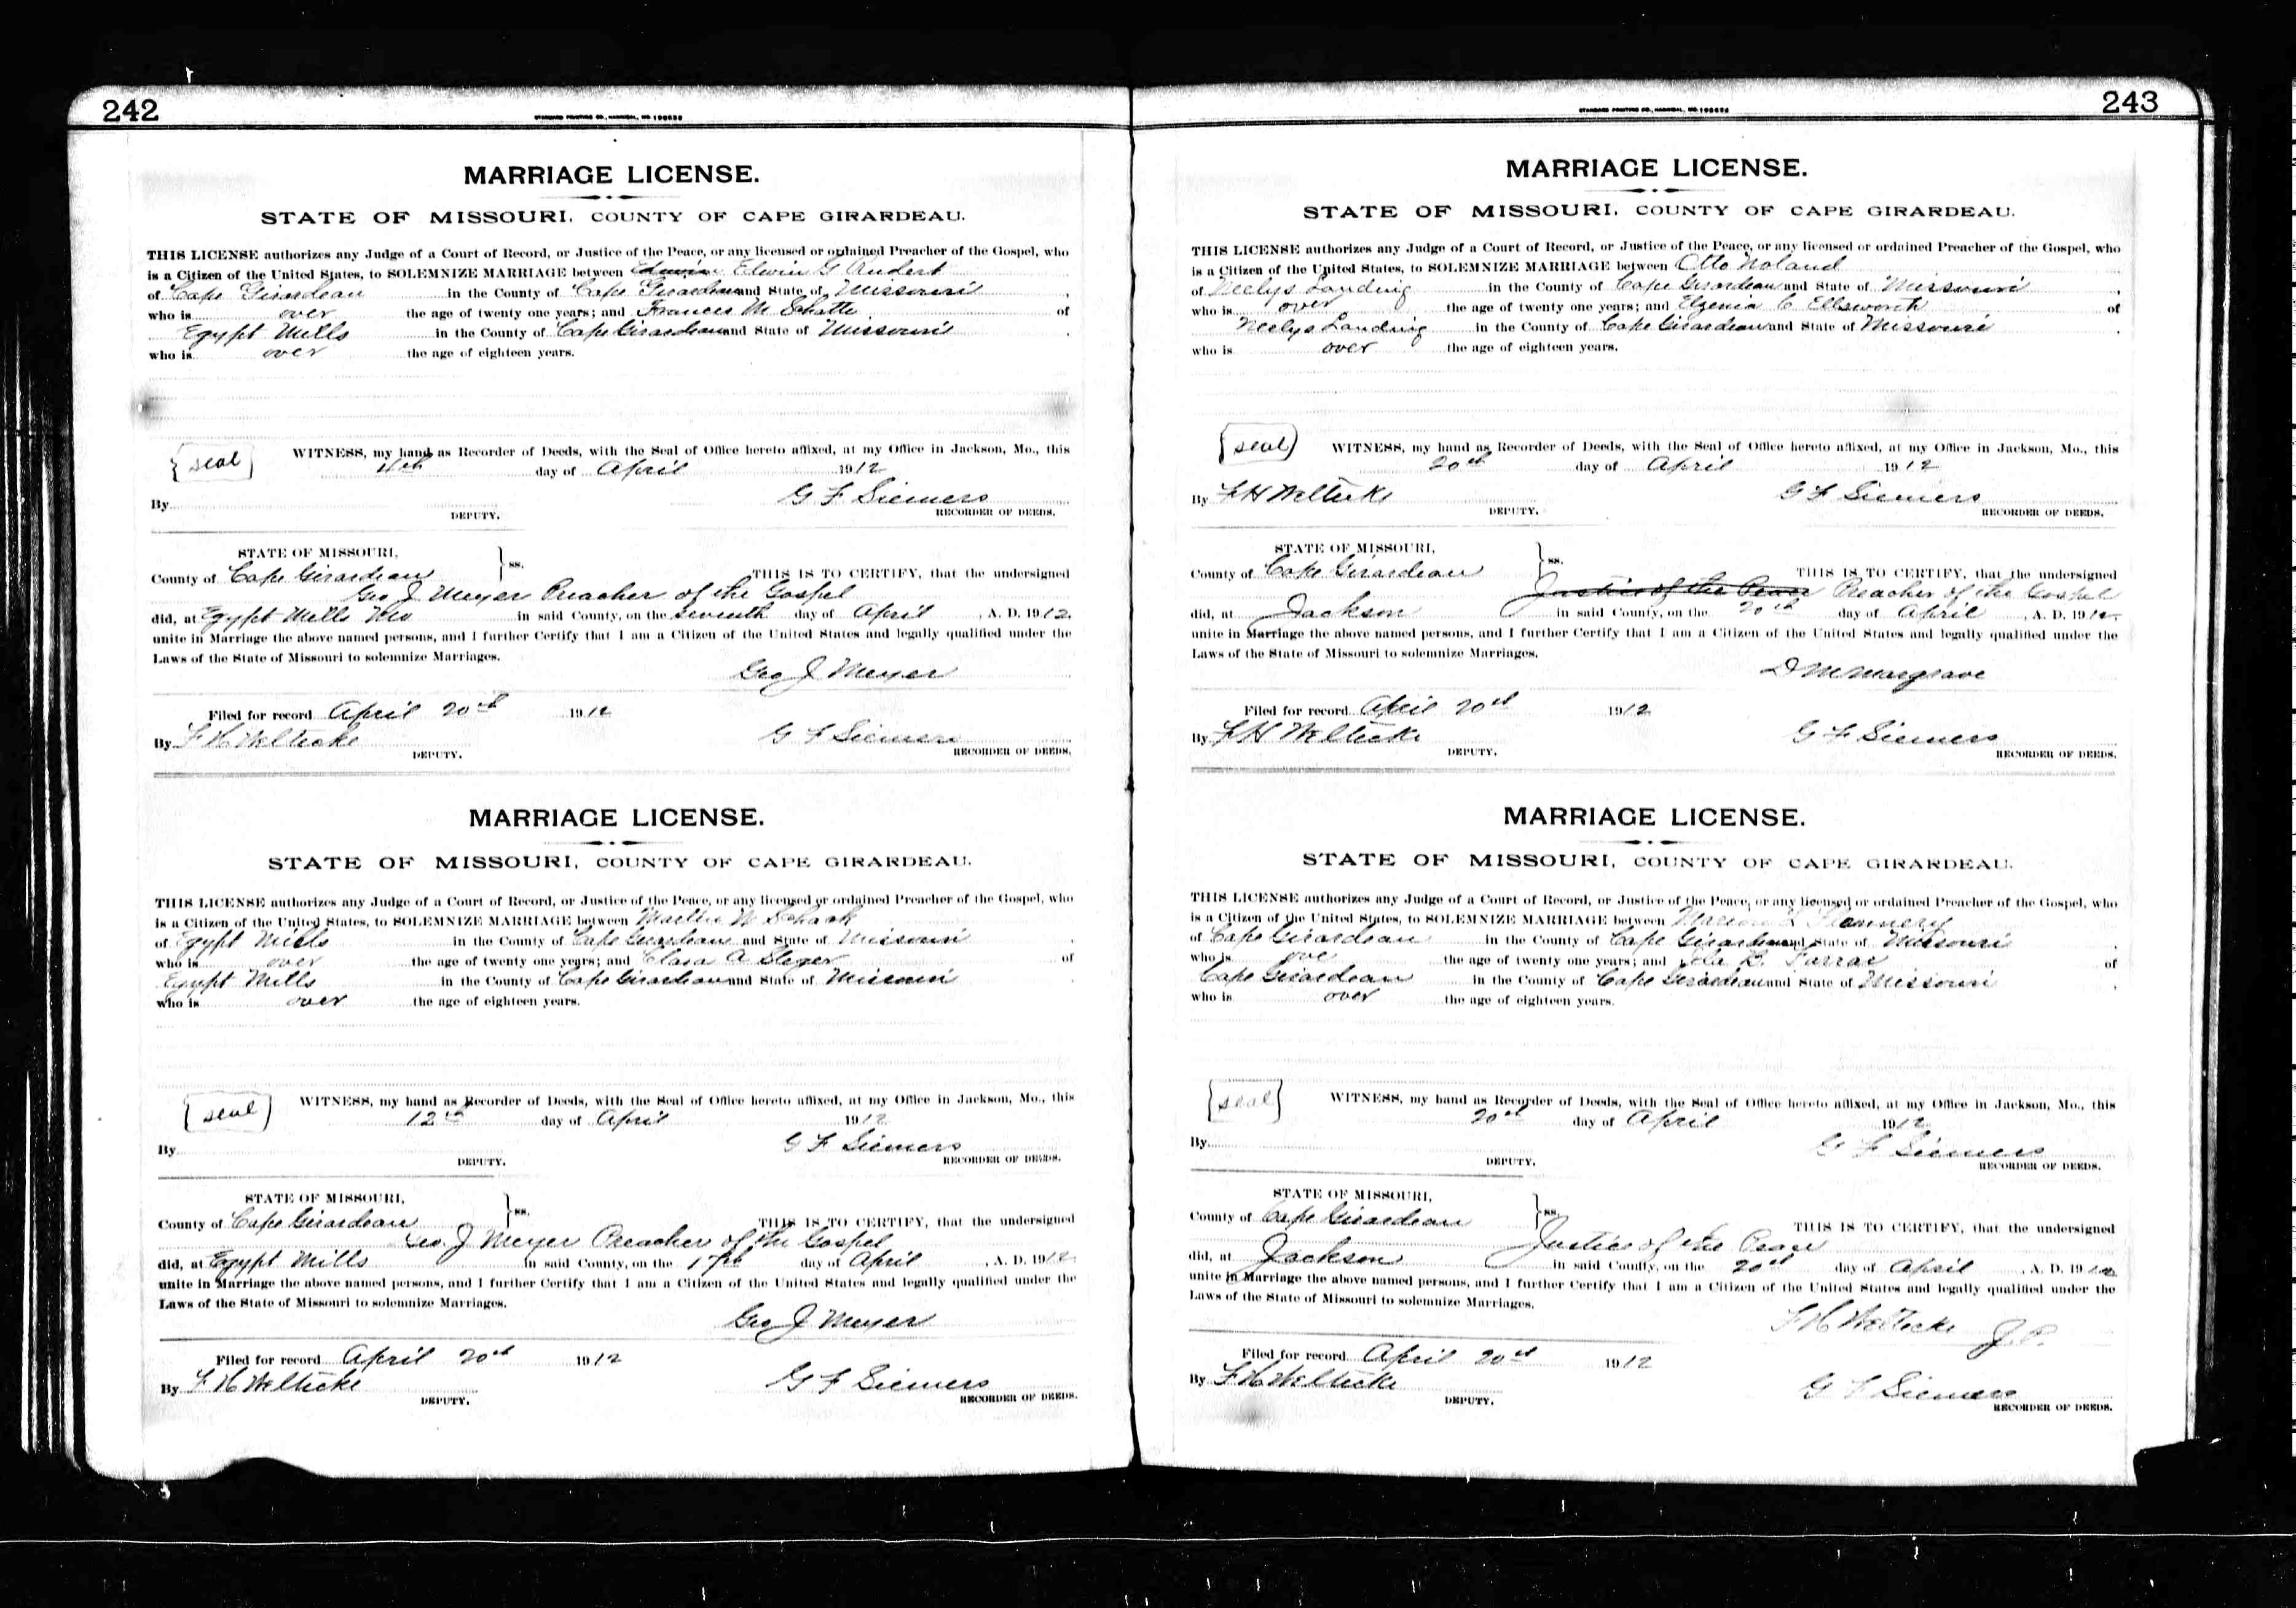 242
MARRIAGE LICENSE.
STATE OF MISSOURI, COUNTY OF CAPE GIRARDEAU.
THIS LICENSE authorizes any Judge of a Court of Record, or Justice of the Peace, or any licensed or ordained Preacher of the Gospel, who
is a Citizen of the United States, to SOLEMNIZE MARRIAGE between Edwin Elwin G Andert
of Cape Girardeau in the County of Cape Girardeau and State of Missouri,
who is over the age of twenty one years; and Frances M Schatte of
Egypt Mills in the County of Cape Girardeau and State of Missouri
who is over the age of eighteen years.
seal WITNESS, my hand as Recorder of Deeds, with the Seal of Office hereto affixed, at my Office in Jackson, Mo., this
4th day of April 1912
By G F Siemers
DEPUTY. RECORDER OF DEEDS.
STATE OF MISSOURI,
County of Cape Girardeau ss. THIS IS TO CERTIFY, that the undersigned
Geo J Meyer Preacher of the Gospel
did, at Egypt Mills Mo in said County, on the seventh day of April, A. D. 1912
unite in Marriage the above named persons, and I further Certify that I am a Citizen of the United States and legally qualified under the
Laws of the State of Missouri to solemnize Marriages.
Geo J Meyer
Filed for record April 20th 1912
By F H Weltecke G F Siemers
DEPUTY. RECORDER OF DEEDS.
MARRIAGE LICENSE.
STATE OF MISSOURI, COUNTY OF CAPE GIRARDEAU.
THIS LICENSE authorizes any Judge of a Court of Record, or Justice of the Peace, or any licensed or ordained Preacher of the Gospel, who
is a Citizen of the United States, to SOLEMNIZE MARRIAGE between W Schack
of Egypt Mills in the County of Cape Girardeau and State of Missouri
who is over the age of twenty one years; and Clara A Steger of
Egypt Mills in the County of Cape Girardeau and State of Missouri
who is over the age of eighteen years.
seal WITNESS, my hand as Recorder of Deeds, with the Seal of Office hereto affixed, at my Office in Jackson, Mo., this
12th day of April 1912
By G F Siemers
DEPUTY. RECORDER OF DEEDS.
STATE OF MISSOURI,
County of Cape Girardeau ss. THIS IS TO CERTIFY, that the undersigned
Geo. J Meyer Preacher of the Gospel
did, at Egypt Mills in said County, on the 17th day of April, A. D. 1912
unite in Marriage the above named persons, and I further Certify that I am a Citizen of the United States and legally qualified under the
Laws of the State of Missouri to solemnize Marriages.
Geo J Meyer
Filed for record April 20th 1912
By F H Weltecke G F Siemers
DEPUTY. RECORDER OF DEEDS.
243
MARRIAGE LICENSE.
STATE OF MISSOURI, COUNTY OF CAPE GIRARDEAU.
THIS LICENSE authorizes any Judge of a Court of Record, or Justice of the Peace, or any licensed or ordained Preacher of the Gospel, who
is a Citizen of the United States, to SOLEMNIZE MARRIAGE between Otto Noland
of Neelys Landing in the County of Cape Girardeau and State of Missouri,
who is over the age of twenty one years; and Elzenia C Ellsworth of
Neelys Landing in the County of Cape Girardeau and State of Missouri
who is over the age of eighteen years.
seal WITNESS, my hand as Recorder of Deeds, with the Seal of Office hereto affixed, at my Office in Jackson, Mo., this
20th day of April 1912
By F H Weltecke G F Siemers
DEPUTY. RECORDER OF DEEDS.
STATE OF MISSOURI,
County of Cape Girardeau ss. THIS IS TO CERTIFY, that the undersigned
Justice of the Peace Preacher of the Gospel
did, at Jackson in said County, on the 20th day of April, A. D. 1912
unite in Marriage the above named persons, and I further Certify that I am a Citizen of the United States and legally qualified under the
Laws of the State of Missouri to solemnize Marriages.
D M Margrave
Filed for record April 20th 1912
By F H Weltecke G F Siemers
DEPUTY. RECORDER OF DEEDS.
MARRIAGE LICENSE.
STATE OF MISSOURI, COUNTY OF CAPE GIRARDEAU.
THIS LICENSE authorizes any Judge of a Court of Record, or Justice of the Peace, or any licensed or ordained Preacher of the Gospel, who
is a Citizen of the United States, to SOLEMNIZE MARRIAGE between Marion L Flannery
of Cape Girardeau in the County of Cape Girardeau and State of Missouri
who is over the age of twenty one years; and R. Farrar of
Cape Girardeau in the County of Cape Girardeau and State of Missouri
who is over the age of eighteen years.
seal WITNESS, my hand as Recorder of Deeds, with the Seal of Office hereto affixed, at my Office in Jackson, Mo., this
20th day of April 1912
By G F Siemers
DEPUTY. RECORDER OF DEEDS.
STATE OF MISSOURI,
County of Cape Girardeau ss. THIS IS TO CERTIFY, that the undersigned
Justice of the Peace
did, at Jackson in said County, on the 20th day of April, A. D. 1912
unite in Marriage the above named persons, and I further Certify that I am a Citizen of the United States and legally qualified under the
Laws of the State of Missouri to solemnize Marriages.
F H Weltecke J. P.
Filed for record April 20th 1912
By F H Weltecke G F Siemers
DEPUTY. RECORDER OF DEEDS.